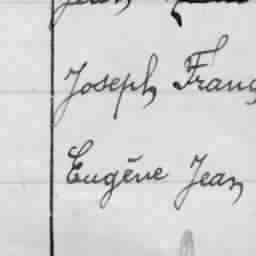 Joseph Franç
Eugène Jean